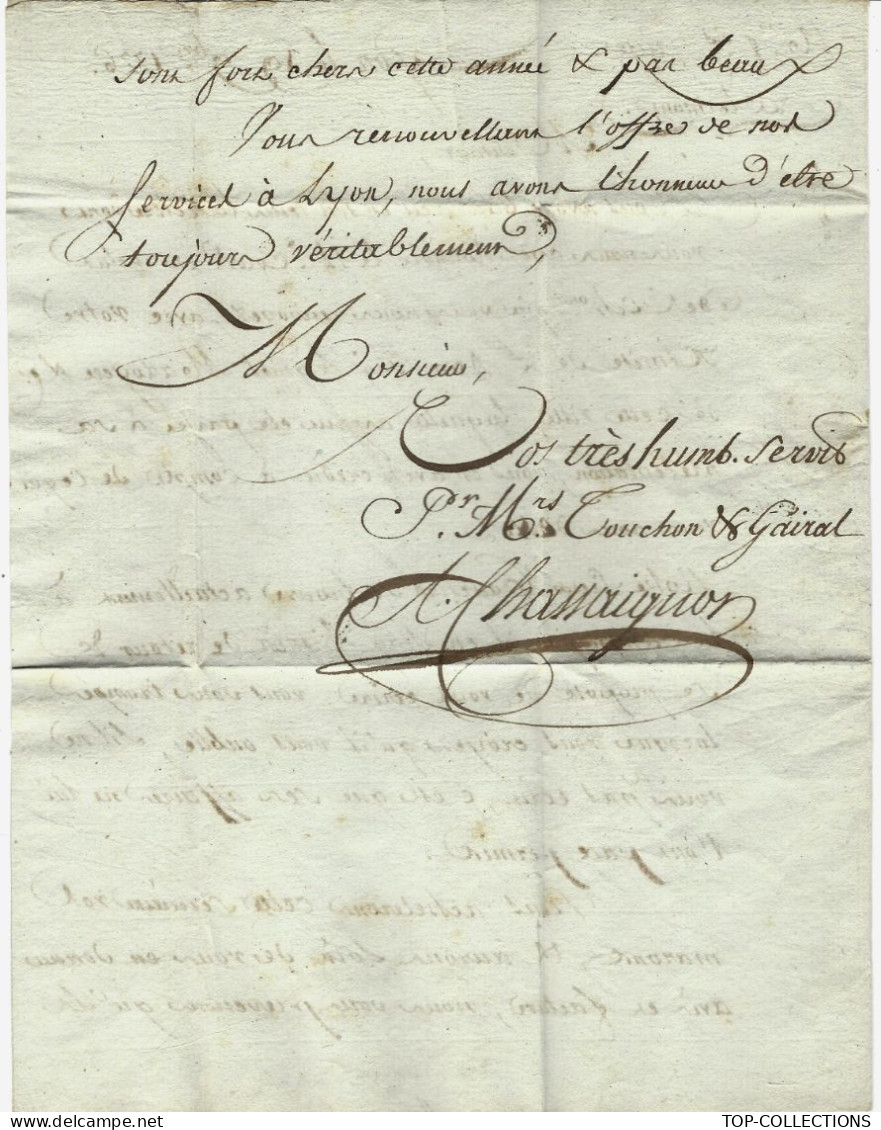 sont fort chers cette année & pas beaux
Vous renouvellant l'offre de nos
Services à Lyon, nous avons l'honneur d'etre
toujours véritablement,
Monsieur,
Vos très humb. servit
Pr. Mrs. Touchon & Gairal
A. Chassaignon
TOP-COLLECTIONS